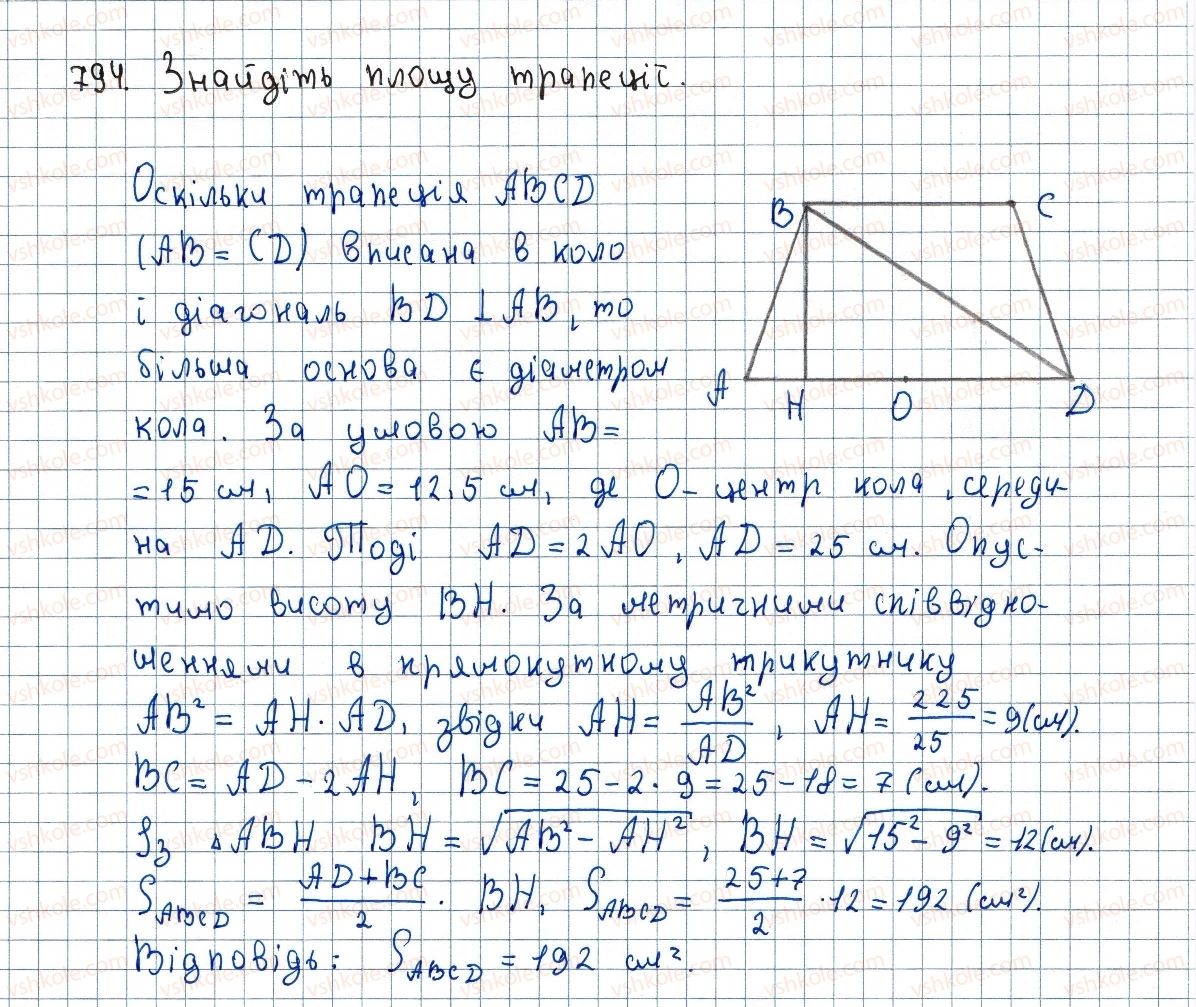 794. Знайдіть площу трапеції.
Оскільки трапеція ABCD
(AB = CD) вписана в коло
і діагональ BD ⊥ AB, то
більша основа є діаметром
кола. За умовою AB =
= 15 см, AO = 12,5 см, де O - центр кола, середи-
на AD. Тоді AD = 2AO, AD = 25 см. Опус-
тимо висоту BH. За метричними співвідно-
шеннями в прямокутному трикутнику
AB² = AH · AD, звідки AH = AB²/AD, AH = 225/25 = 9 (см).
BC = AD - 2AH, BC = 25 - 2 · 9 = 25 - 18 = 7 (см).
Із △ABH BH = √(AB² - AH²), BH = √(15² - 9²) = 12 (см).
S_ABCD = (AD + BC)/2 · BH, S_ABCD = (25 + 7)/2 · 12 = 192 (см²).
Відповідь: S_ABCD = 192 см².
B C
A H O D
vshkole.com